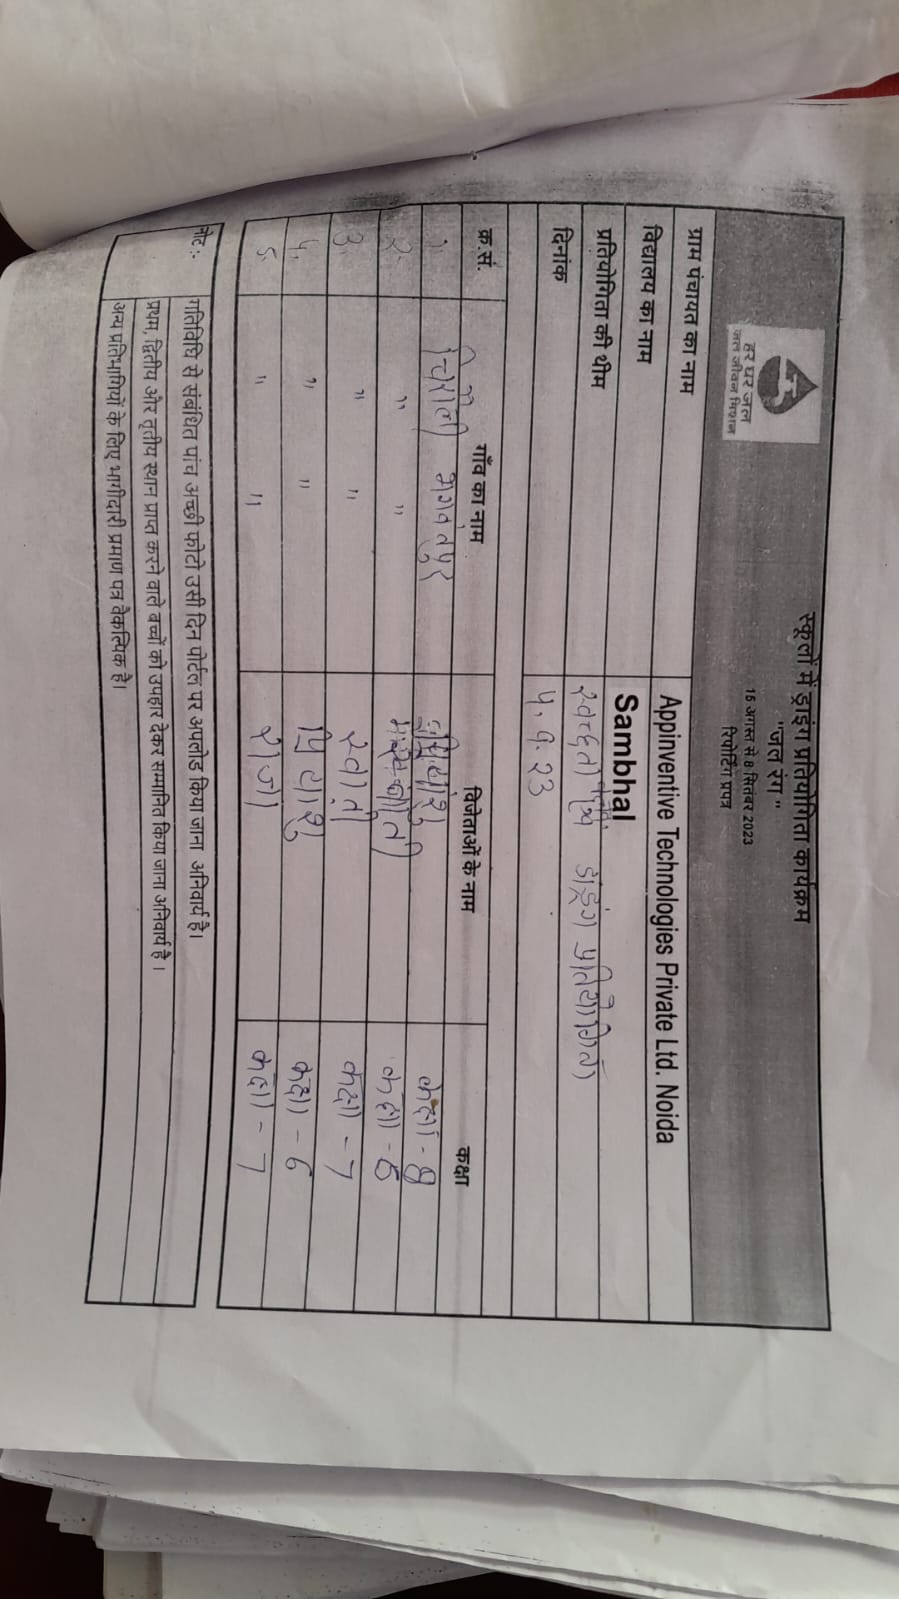 हर घर जल
जल जीवन मिशन
स्कूलों में ड्राइंग प्रतियोगिता कार्यक्रम
"जल रंग"
15 अगस्त से 8 सितंबर 2023
रिपोर्टिंग प्रपत्र
ग्राम पंचायत का नाम Appinventive Technologies Private Ltd. Noida
विद्यालय का नाम Sambhal
प्रतियोगिता की थीम स्वच्छता ड्राइंग प्रतियोगिता
दिनांक 5.9.23
क्र.सं. गाँव का नाम विजेताओं के नाम कक्षा
१. भगवंतपुर कक्षा - 8
२. " " कक्षा -
३. " " स्वाती कक्षा - 7
४. " " प्रियांशु कक्षा - 6
५. " " राजा कक्षा - 7
नोट :- गतिविधि से संबंधित पांच अच्छी फोटो उसी दिन पोर्टल पर अपलोड किया जाना अनिवार्य है।
प्रथम, द्वितीय और तृतीय स्थान प्राप्त करने वाले बच्चों को उपहार देकर सम्मानित किया जाना अनिवार्य है।
अन्य प्रतिभागियों के लिए भागीदारी प्रमाण पत्र वैकल्पिक है।